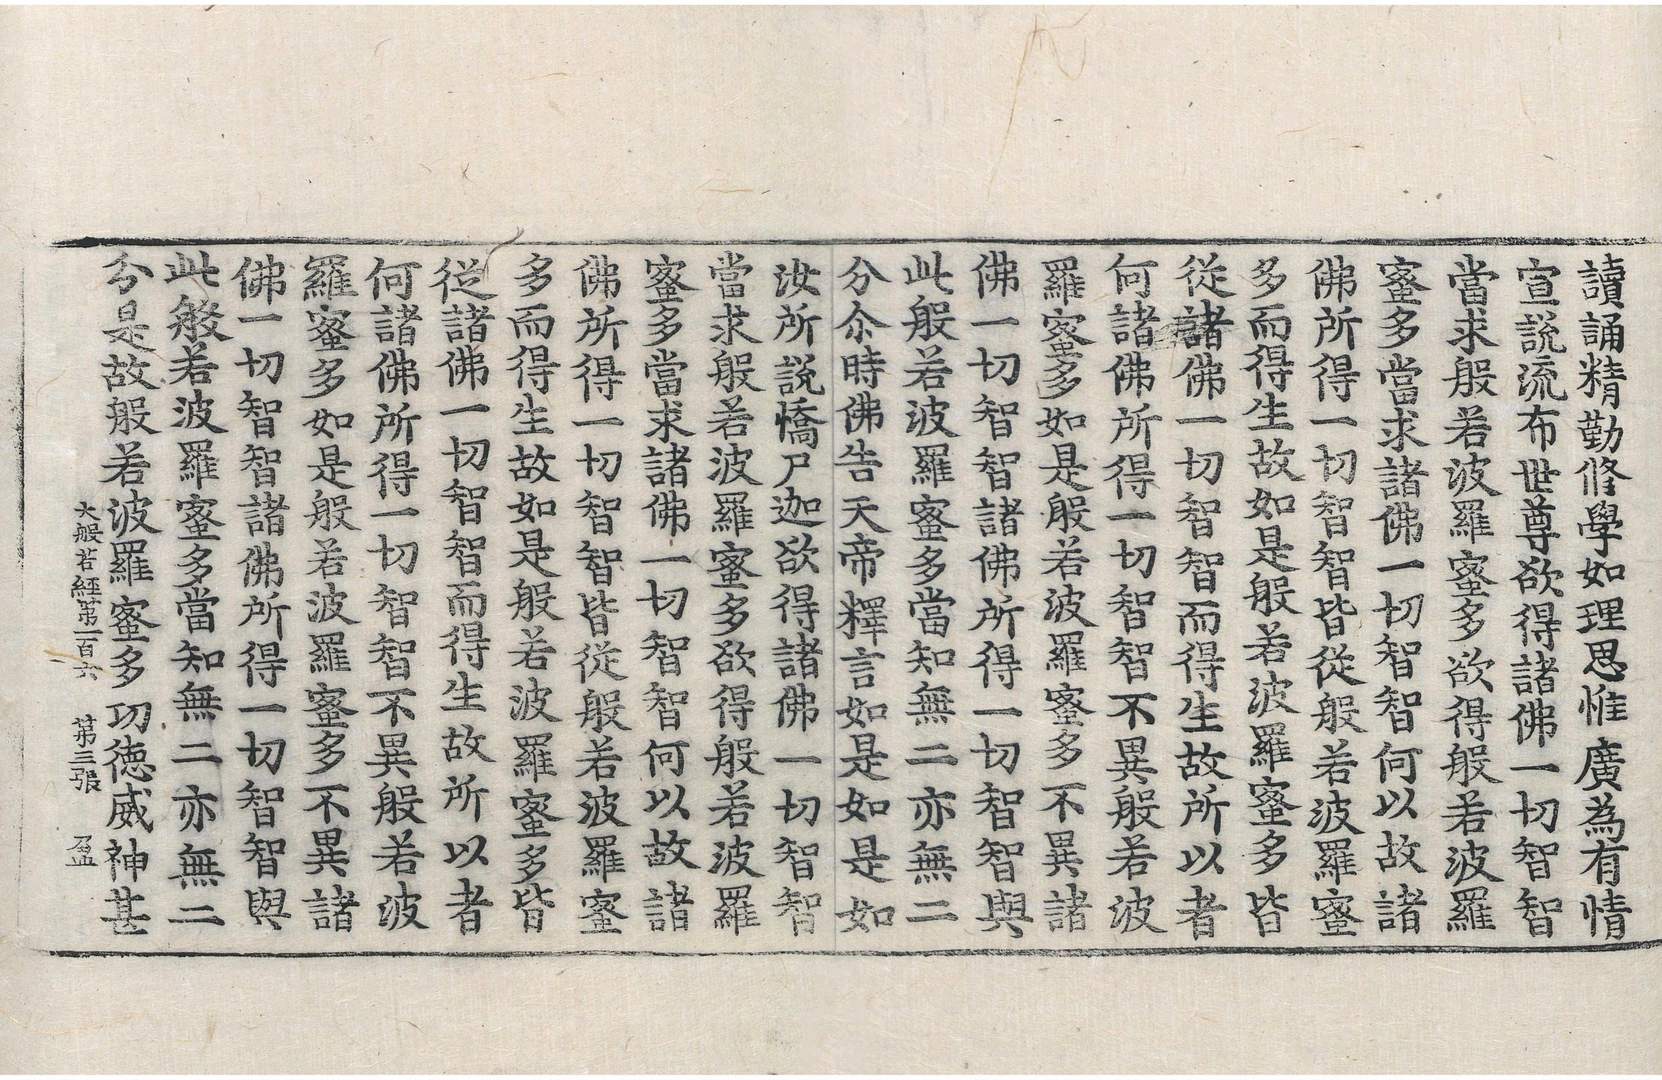 讀誦精勤修學如理思惟廣為有情
宣說流布世尊欲得諸佛一切智智
當求般若波羅蜜多欲得般若波羅
蜜多當求諸佛一切智智何以故諸
佛所得一切智智皆從般若波羅蜜
多而得生故如是般若波羅蜜多皆
從諸佛一切智智而得生故所以者
何諸佛所得一切智智不異般若波
羅蜜多如是般若波羅蜜多不異諸
佛一切智智諸佛所得一切智智與
此般若波羅蜜多當知無二亦無二
分尒時佛告天帝釋言如是如是如
汝所說憍尸迦欲得諸佛一切智智
當求般若波羅蜜多欲得般若波羅
蜜多當求諸佛一切智智何以故諸
佛所得一切智智皆從般若波羅蜜
多而得生故如是般若波羅蜜多皆
從諸佛一切智智而得生故所以者
何諸佛所得一切智智不異般若波
羅蜜多如是般若波羅蜜多不異諸
佛一切智智諸佛所得一切智智與
此般若波羅蜜多當知無二亦無二
分是故般若波羅蜜多功德威神甚
大般若經第一百六 第三張 盈